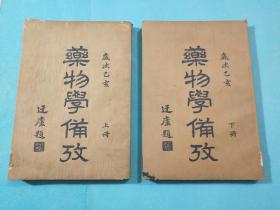 歲次乙亥
藥物學備攷
上冊
廬題
歲次乙亥
藥物學備攷
下冊
廬題